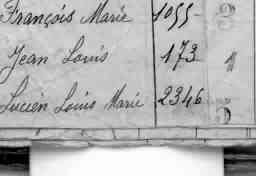 François Marie 1055
Jean Louis 173
Lucien Louis Marie 2346